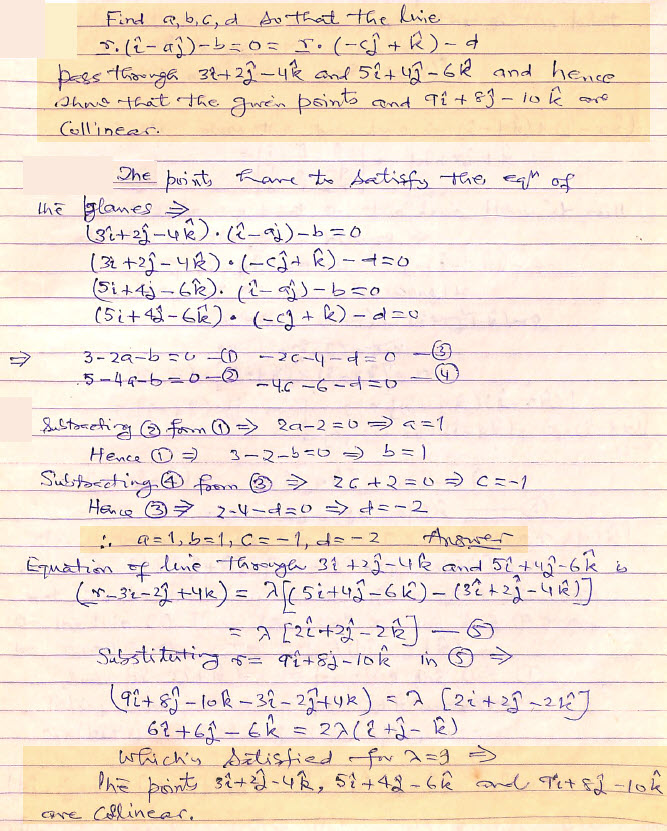 Find a, b, c, d so that the line
r.(î-aĵ)-b=0= r.(-cĵ+k̂)-d
pass through 3î+2ĵ-4k̂ and 5î+4ĵ-6k̂ and hence
show that the given points and 9î+8ĵ-10k̂ are
Collinear.
The points have to satisfy the eqⁿ of
the planes ⇒
(3î+2ĵ-4k̂).(î-aĵ)-b=0
(3i+2ĵ-4k̂).(-cĵ+k̂)-d=0
(5i+4j-6k̂).(î-aĵ)-b=0
(5i+4ĵ-6k̂).(-cĵ+k̂)-d=0
⇒ 3-2a-b=0 —① -2c-4-d=0 —③
5-4a-b=0 —② -4c-6-d=0 —④
Subtracting ② from ① ⇒ 2a-2=0 ⇒ a=1
Hence ① ⇒ 3-2-b=0 ⇒ b=1
Subtracting ④ from ③ ⇒ 2c+2=0 ⇒ c=-1
Hence ③ ⇒ 2-4-d=0 ⇒ d=-2
∴ a=1, b=1, c=-1, d=-2 Answer
Equation of line through 3î+2ĵ-4k̂ and 5î+4ĵ-6k̂ is
(r-3î-2ĵ+4k) = λ[(5i+4ĵ-6k̂)-(3î+2ĵ-4k̂)]
= λ[2î+2ĵ-2k̂] —⑤
Substituting r= 9î+8ĵ-10k̂ in ⑤ ⇒
(9î+8ĵ-10k-3î-2ĵ+4k) = λ[2i+2ĵ-2k̂]
6î+6ĵ-6k̂ = 2λ(î+ĵ-k̂)
Which is satisfied for λ=3 ⇒
The points 3î+2ĵ-4k̂, 5î+4ĵ-6k̂ and 9î+8ĵ-10k̂
are collinear.